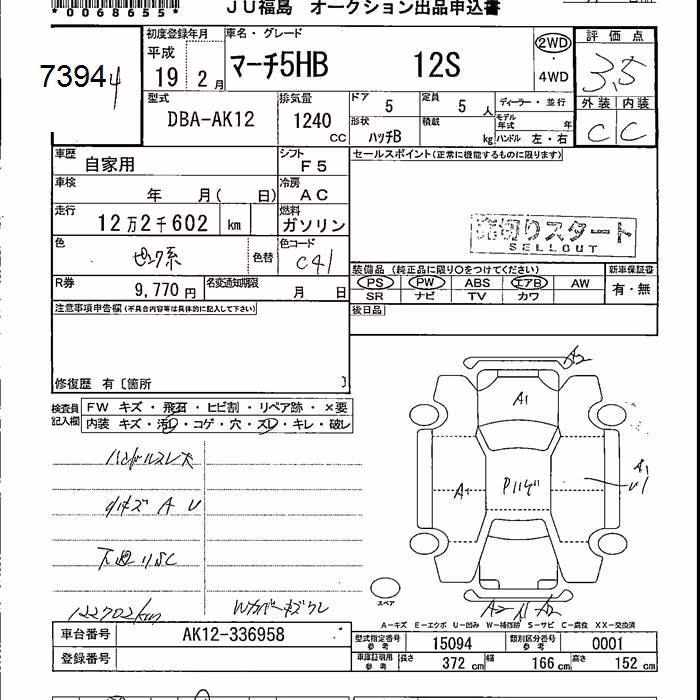 *0068655*
JU福島 オークション出品申込書
73944
初度登録年月 車名・グレード 評価点
平成 19 2月 マーチ5HB 12S 2WD ・ 4WD 3.5
型式 排気量 ドア 定員 ディーラー・並行 外装 内装
DBA-AK12 1240 CC 5 5人 モデル年式 年 C C
形状 積載
ハッチB kg ハンドル 左・右
車歴 自家用 シフト F5 セールスポイント(正常に機能するものに限ります)
車検 年 月( 日) 冷房 AC
走行 12万2千602 km 燃料 ガソリン
締切りスタート
SELLOUT
色 ピンク系 色替 色コード C41
装備品 (純正品に限り○をつけてください) 新車保証書
PS PW ABS エアB AW 有・無
SR ナビ TV カワ
R券 9,770円 名変通知期限 月 日
注意事項申告欄(不具合内容等は具体的に記入して下さい) 後日品
修復歴 有〔箇所 〕
検査員記入欄 FW キズ・飛石・ヒビ割・リペア跡・×要
内装 キズ・汚レ・コゲ・穴・スレ・キレ・破レ
ハンドルスレ大
小キズ A U
下廻りSC
122702km Wカバーキズワレ
A2
A1
A1
A1
U1
スペア
A2
A−キズ E−エクボ U−凹み W−補修跡 S−サビ C−腐食 XX−交換済
車台番号 AK12-336958 型式指定番号 参考 15094 類別区分番号 参考 0001
登録番号 車庫証明用 参考 長さ 372 cm 幅 166 cm 高さ 152 cm